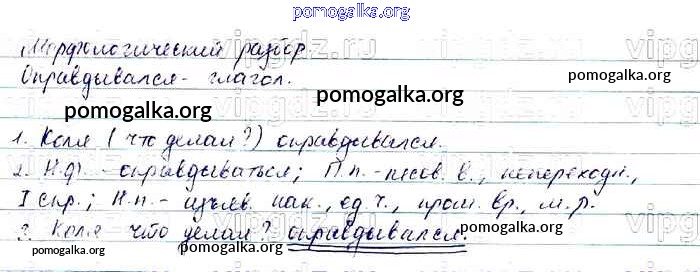 pomogalka.org
Морфологический разбор.
Оправдывался - глагол.
pomogalka.org
pomogalka.org
pomogalka.org
1. Коля (что делал?) оправдывался.
2. Н.ф. - оправдываться; П.п. - несов. в., непереходн.,
I спр.; Н.п. - изъяв. нак., ед. ч., прош. вр., м. р.
3. Коля что делал? оправдывался.
pomogalka.org
pomogalka.org